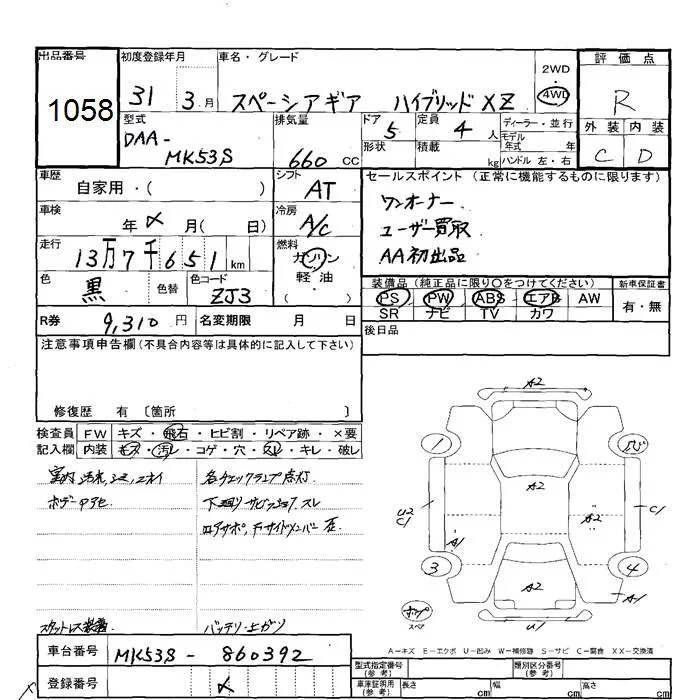 出品番号 初度登録年月 車名・グレード 2WD・4WD 評価点
1058 31 3月 スペーシアギア ハイブリッドXZ R
型式 排気量 ドア 5 定員 4人 ディーラー・並行 外装 内装
DAA-MK53S 660cc 形状 積載 kg モデル年式 年 C D
ハンドル 左・右
車歴 自家用・( ) シフト AT セールスポイント (正常に機能するものに限ります)
車検 年〆月( 日) 冷房 A/C ワンオーナー
ユーザー買取
AA初出品
走行 13万7千651km 燃料 ガソリン 軽油 ( )
色 黒 色替 色コード ZJ3 装備品(純正品に限り〇をつけてください) 新車保証書
PS PW ABS エアB AW 有・無
SR ナビ TV カワ
R券 9,310円 名変期限 月 日 後日品
注意事項申告欄(不具合内容等は具体的に記入して下さい)
修復歴 有 〔箇所 〕
検査員 FW キズ・飛石・ヒビ割・リペア跡・×要
記入欄 内装 キズ・汚レ・コゲ・穴・スレ・キレ・破レ
室内汚れ,シミ,ニオイ 各チェックランプ点灯
ボデー 下廻りサビ スレ
スタットレス装着 バッテリー上がり
A2
1
A2
U2
C/
A2
C/
A/
3
A2
4
A/
スペア
U/
A−キズ E−エクボ U−凹み W−補修跡 S−サビ C−腐食 XX−交換済
車台番号 MK53S-860392 型式指定番号(参考) 類別区分番号(参考)
登録番号 〆 車庫証明用(参考) 長さ cm 幅 cm 高さ cm